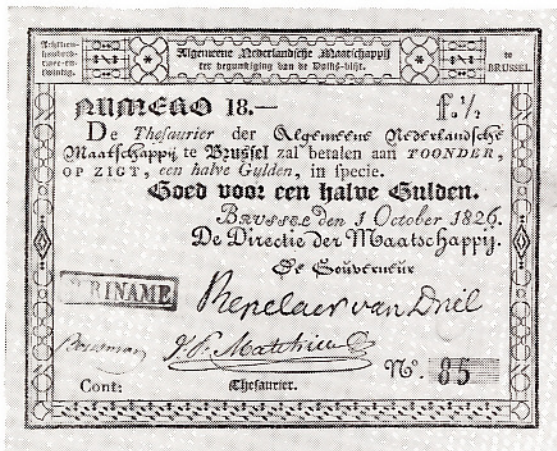 Achttien-
honderd-
twee-en-
twintig.
Algemeene Nederlandsche Maatschappij
ter begunstiging van de Volks-vlijt.
te
BRUSSEL
NUMERO 18.— f. 1/2
De Thesaurier der Algemeene Nederlandsche
Maatschappij te Brussel zal betalen aan TOONDER,
OP ZIGT, een halve Gulden, in specie.
Goed voor een halve Gulden.
BRUSSEL den 1 October 1826.
De Directie der Maatschappij.
De Gouverneur
SURINAME
Repelaer van Driel
J. P. Matthieu
No. 85
Cont: Thesaurier.